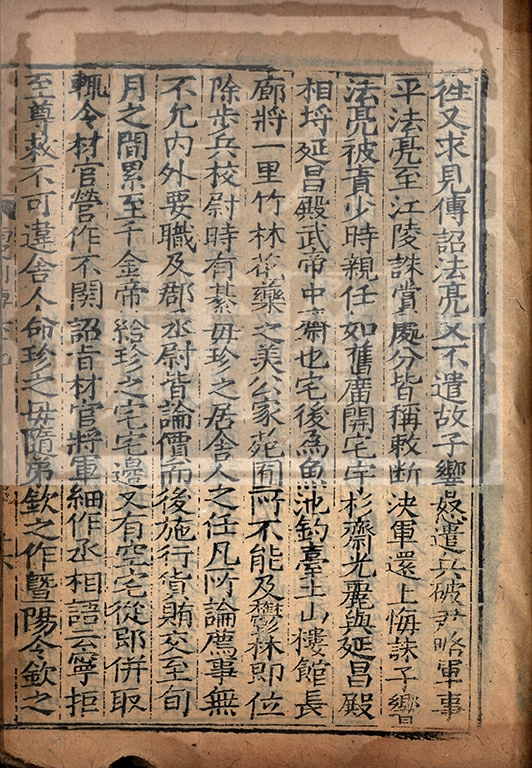 往又求見傳詔法亮又不遣故子響怒遣兵破尹略軍事
平法亮至江陵誅賞處分皆稱敕断决軍還上悔誅子響
法亮被責少時親任如舊廣開宅宇杉齋光麗與延昌殿
相埒延昌殿武帝中齋也宅後為魚池釣臺土山樓館長
廊將一里竹林花藥之美公家苑囿所不能及鬱林即位
除步兵校尉時有綦毋珍之居舍人之任凡所論薦事無
不允内外要職及郡丞尉皆論價而後施行貨賄交至旬
月之間累至千金帝給珍之宅宅邊又有空宅從即併取
輒令材官營作不関詔旨材官將軍細作丞相語云寧拒
至尊敕不可違舍人命珍之母隨弟欽之作暨陽令欽之